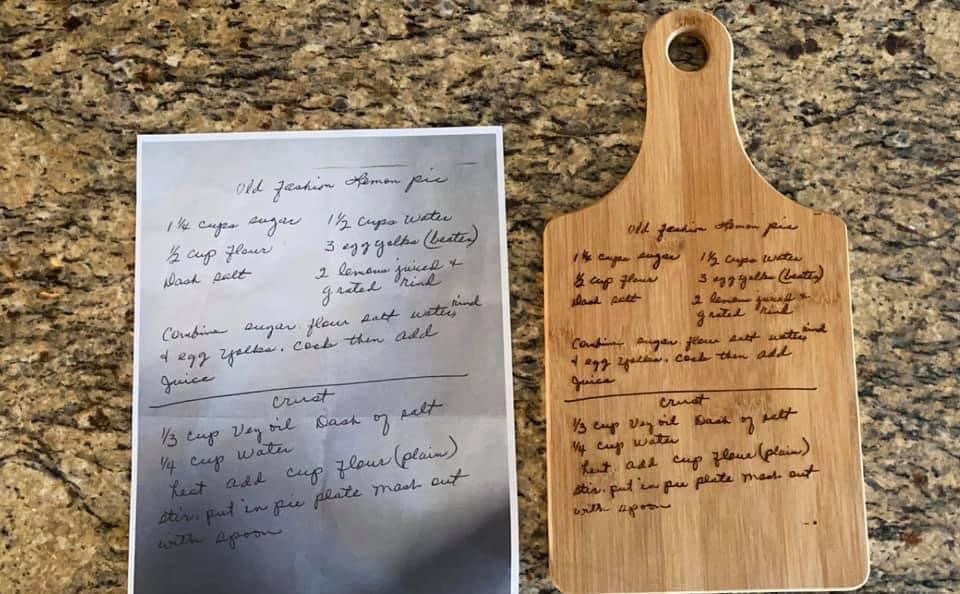 Old Fashion Lemon pie
1 1/4 cups sugar
1/2 cup flour
Dash salt
1 1/2 cups water
3 egg yolks (beaten)
2 lemons juiced &
grated rind
Combine sugar, flour salt water, rind
& egg yolks. Cook then add
Juice
Crust
1/3 cup Veg oil Dash of salt
1/4 cup water
heat add cup flour (plain)
stir. put in pie plate mash out
with spoon
Old Fashion Lemon pie
1 1/4 cups sugar
1/2 cup flour
Dash salt
1 1/2 cups water
3 egg yolks (beaten)
2 lemons juiced &
grated rind
Combine sugar, flour salt water, rind
& egg yolks. Cook then add
Juice
Crust
1/3 cup Veg oil Dash of salt
1/4 cup water
heat add cup flour (plain)
stir. put in pie plate mash out
with spoon